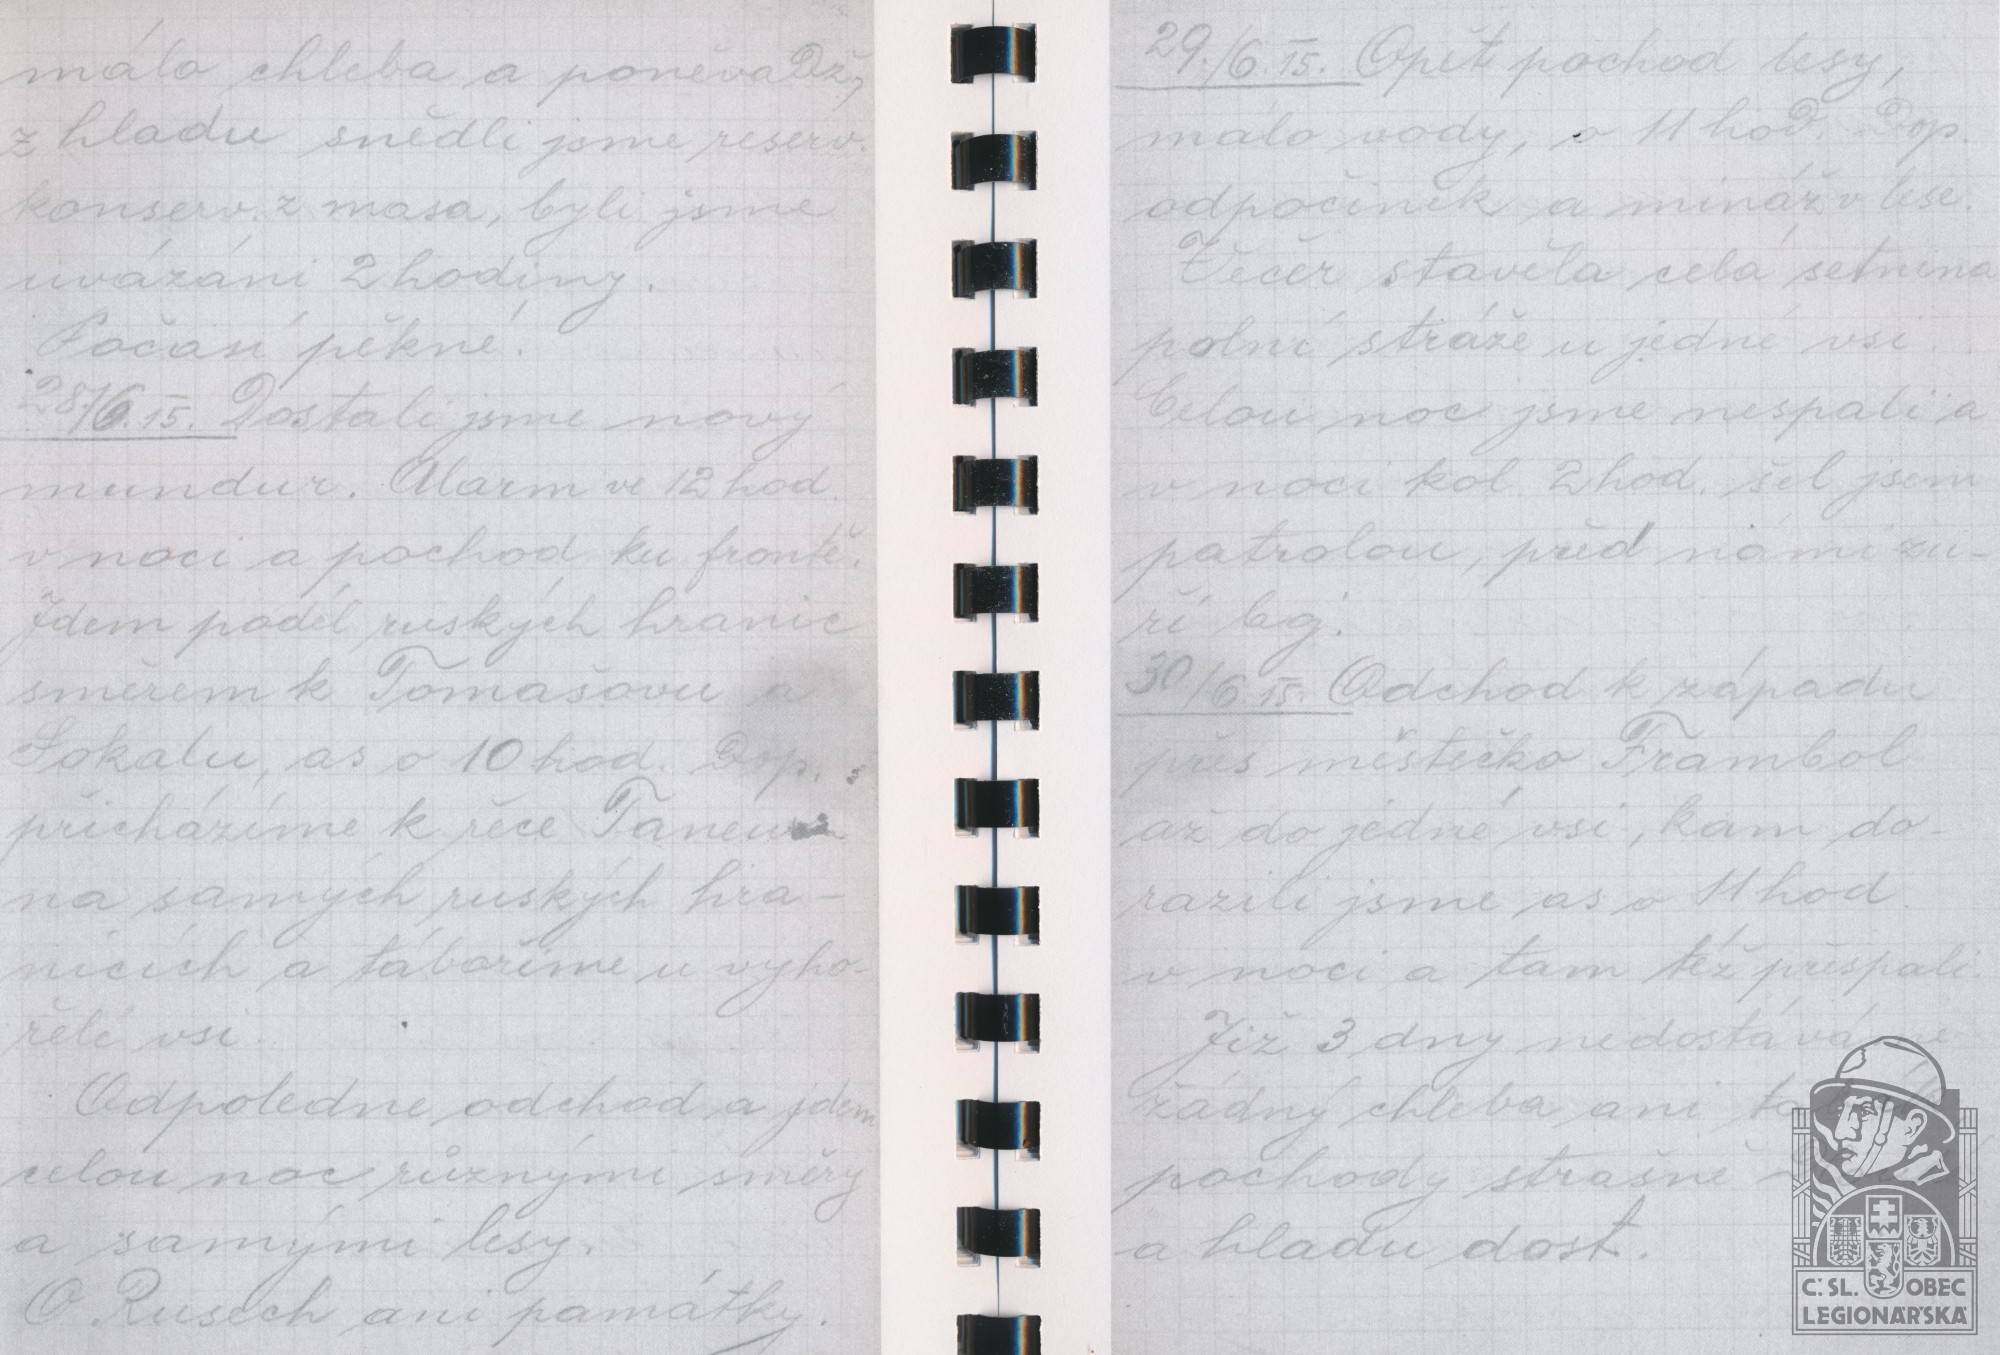 málo chleba a poněvadž,
z hladu snědli jsme reserv.
konserv. z masa, byli jsme
uvázáni 2 hodiny.
Počasí pěkné.
28./6. 15. Dostali jsme nový
mundur. Alarm ve 12 hod.
v noci a pochod ku frontě.
Jdem podél ruských hranic
směrem k Tomašovu a
Sokalu, as o 10 hod. Dop.
přicházíme k řece Tanew
na samých ruských hra-
nicích a táboříme u vyho-
řelé vsi.
Odpoledne odchod a jdem
celou noc různými směry
a samými lesy.
O Rusech ani památky.
29./6. 15. Opět pochod lesy,
málo vody, o 11 hod. Dop.
odpočinek a mináž v lese.
Večer stavěla celá setnina
polní stráže u jedné vsi.
Celou noc jsme nespali a
v noci kol 2 hod. šel jsem
patrolou, před námi zu-
ří boj.
30/6. 15. Odchod k západu
přes městečko Frambol
až do jedné vsi, kam do-
razili jsme as o 11 hod.
v noci a tam též přespali.
Již 3 dny nedostáváme
žádný chleba ani
pochody strašné
a hladu dost.
Č. SL. OBEC
LEGIONÁŘSKÁ